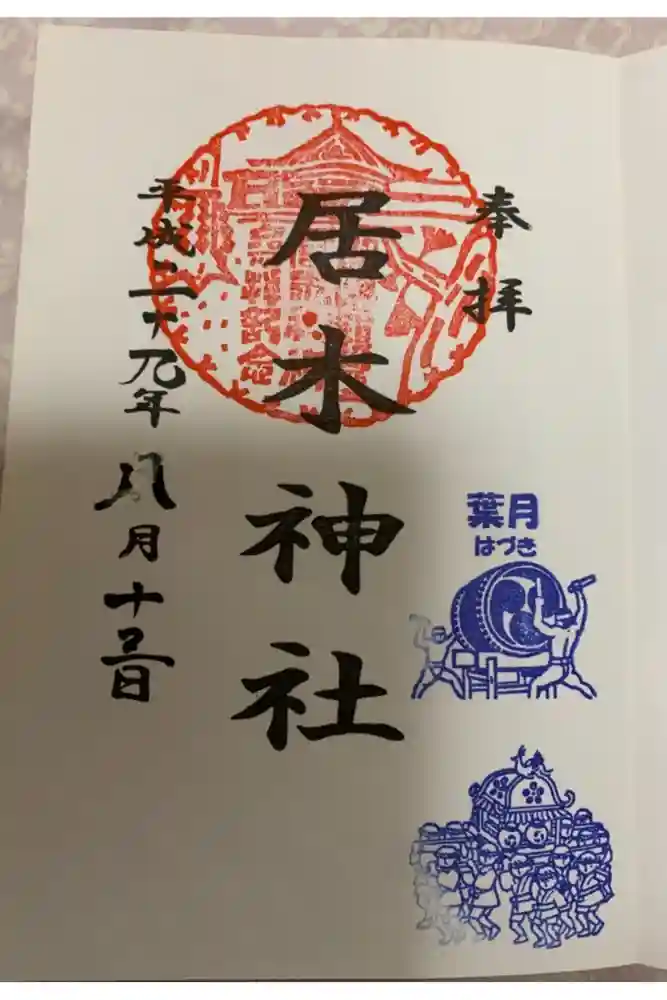 奉拝
居木神社
平成二十九年八月十五日
葉月
はづき